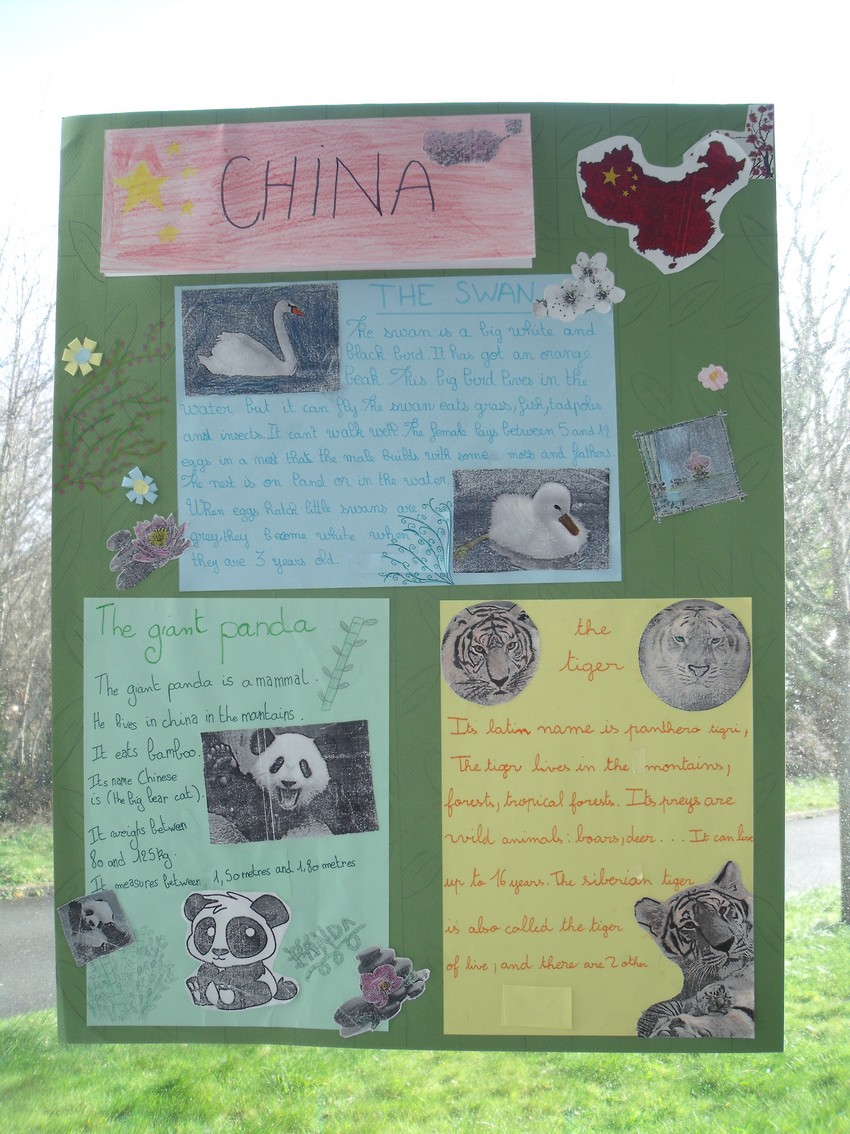 CHINA
THE SWAN
The swan is a big white and
black bird. It has got an orange
beak. This big bird lives in the
water but it can fly. The swan eats grass, fish, tadpoles
and insects. It can't walk well. The female lays between 5 and 12
eggs in a nest that the male builds with some moss and fathers.
The nest is on land or in the water.
When eggs hatch little swans are
grey, they become white when
they are 3 years old.
The giant panda
The giant panda is a mammal.
He lives in china in the mantains.
It eats bamboo.
Its name Chinese
is (the big bear cat).
It weighs between
80 and 125kg.
It measures between 1,50 metres and 1,80 metres
PANDA
the
tiger
Its latin name is panthera tigri,
The tiger lives in the montains,
forests, tropical forests. Its preys are
wild animals: boars, deer... It can live
up to 16 years. The siberian tiger
is also called the tiger
of live, and there are 2 other